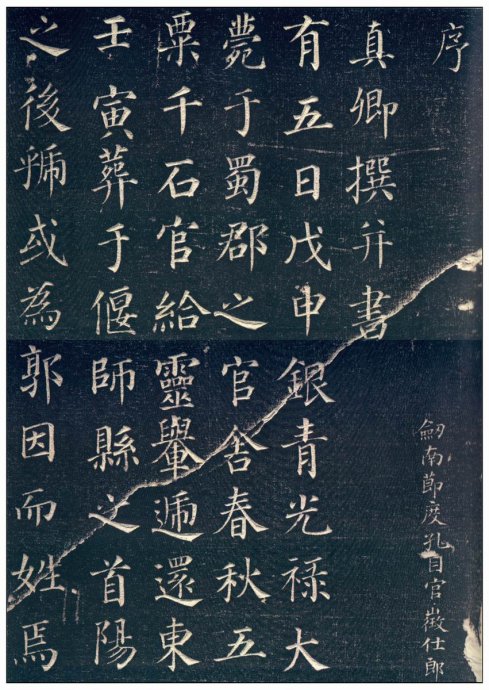 序
劒南節度孔目官徵仕郎
真卿撰并書
有五日戊申銀青光禄大
薨于蜀郡之官舍春秋五
粟千石官給靈轝遞還東
壬寅葬于偃師縣之首陽
之後虢或為郭因而姓焉